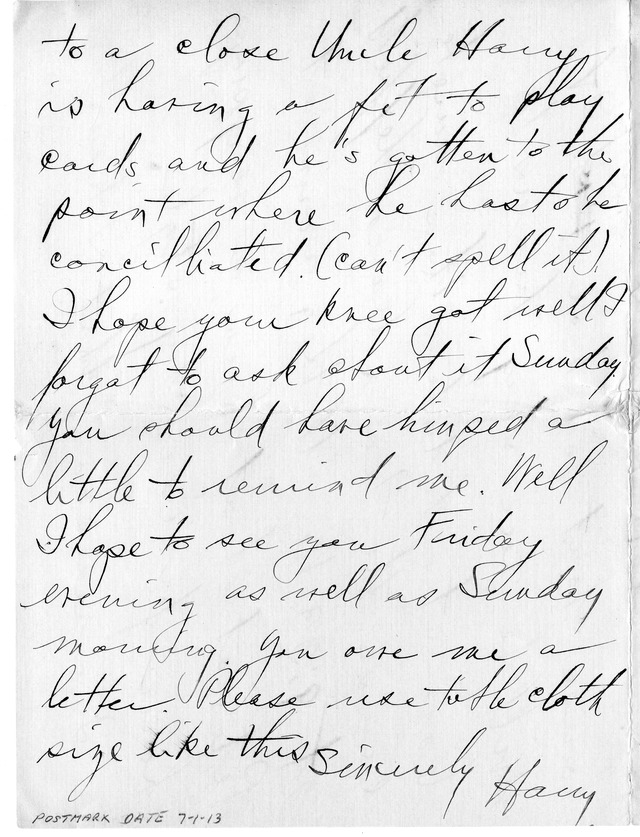 to a close Uncle Harry
is having a fit to play
cards and he's gotten to the
point where he has to be
concilliated. (can't spell it).
I hope your knee got well I
forgot to ask about it Sunday.
You should have himped a
little to remind me. Well
I hope to see you Friday
evening as well as Sunday
morning. You owe me a
letter. Please use cloth
size like this
Sincerely Harry
POSTMARK DATE 7-1-13